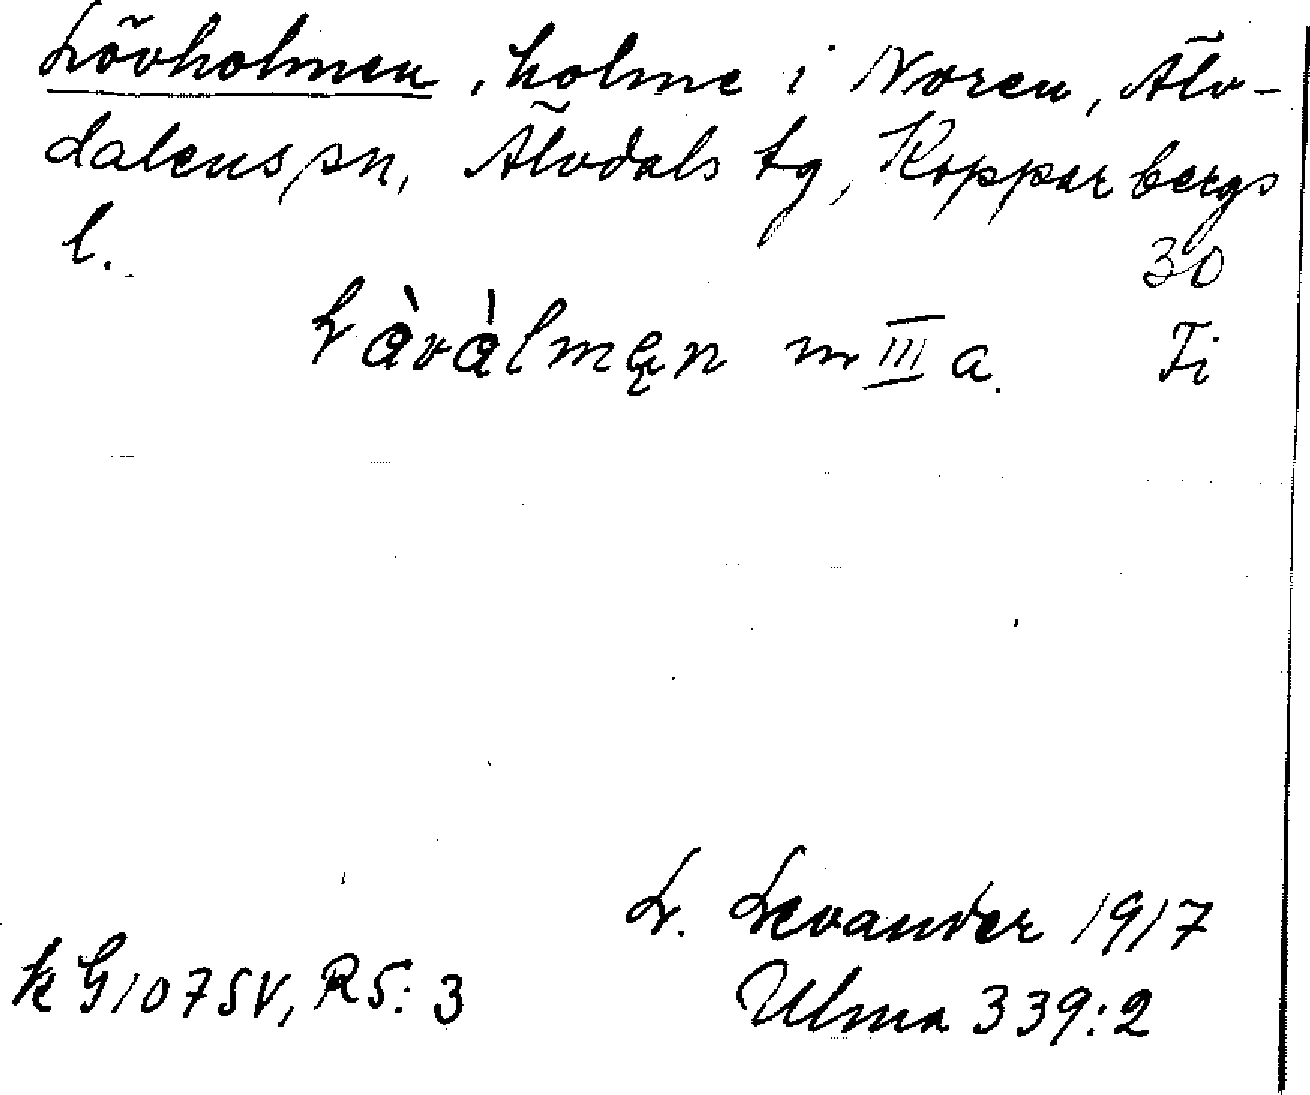 Lövholmen, holme i Noren, Älv-
dalens sn, Älvdals tg, Kopparbergs
l.
30
Làvàlmęn m III a. Ti
L. Levander 1917
k G107SV, R5:3 Ulma 339:2